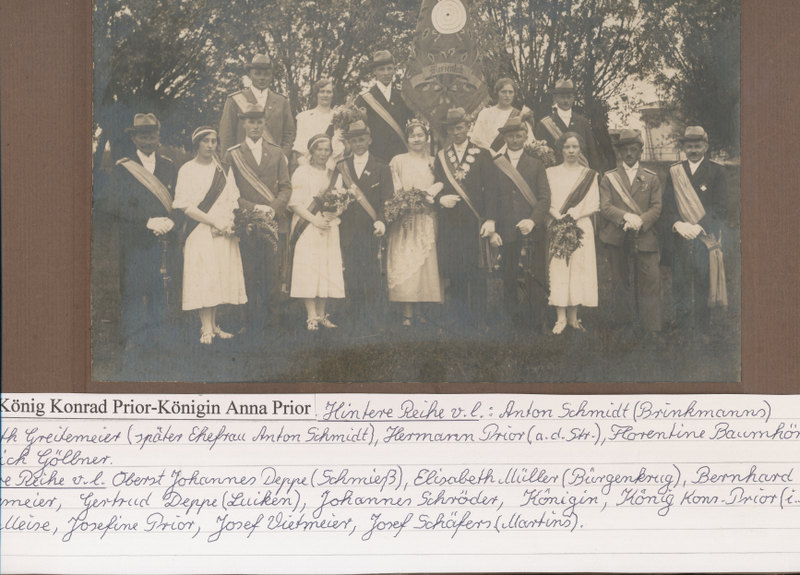 König Konrad Prior-Königin Anna Prior Hintere Reihe v.l.: Anton Schmidt (Brinkmanns)
th Greitemeier (später Ehefrau Anton Schmidt), Hermann Prior (a.d. Str.), Florentine Baumhön
ich Göllner.
re Reihe v.l. Oberst Johannes Deppe (Schmieß), Elisabeth Müller (Bürgenkrug), Bernhard
meier, Gertrud Deppe (Luiken), Johannes Schröder, Königin, König Konr. Prior (i.
Meise, Josefine Prior, Josef Vietmeier, Josef Schäfers (Martins).